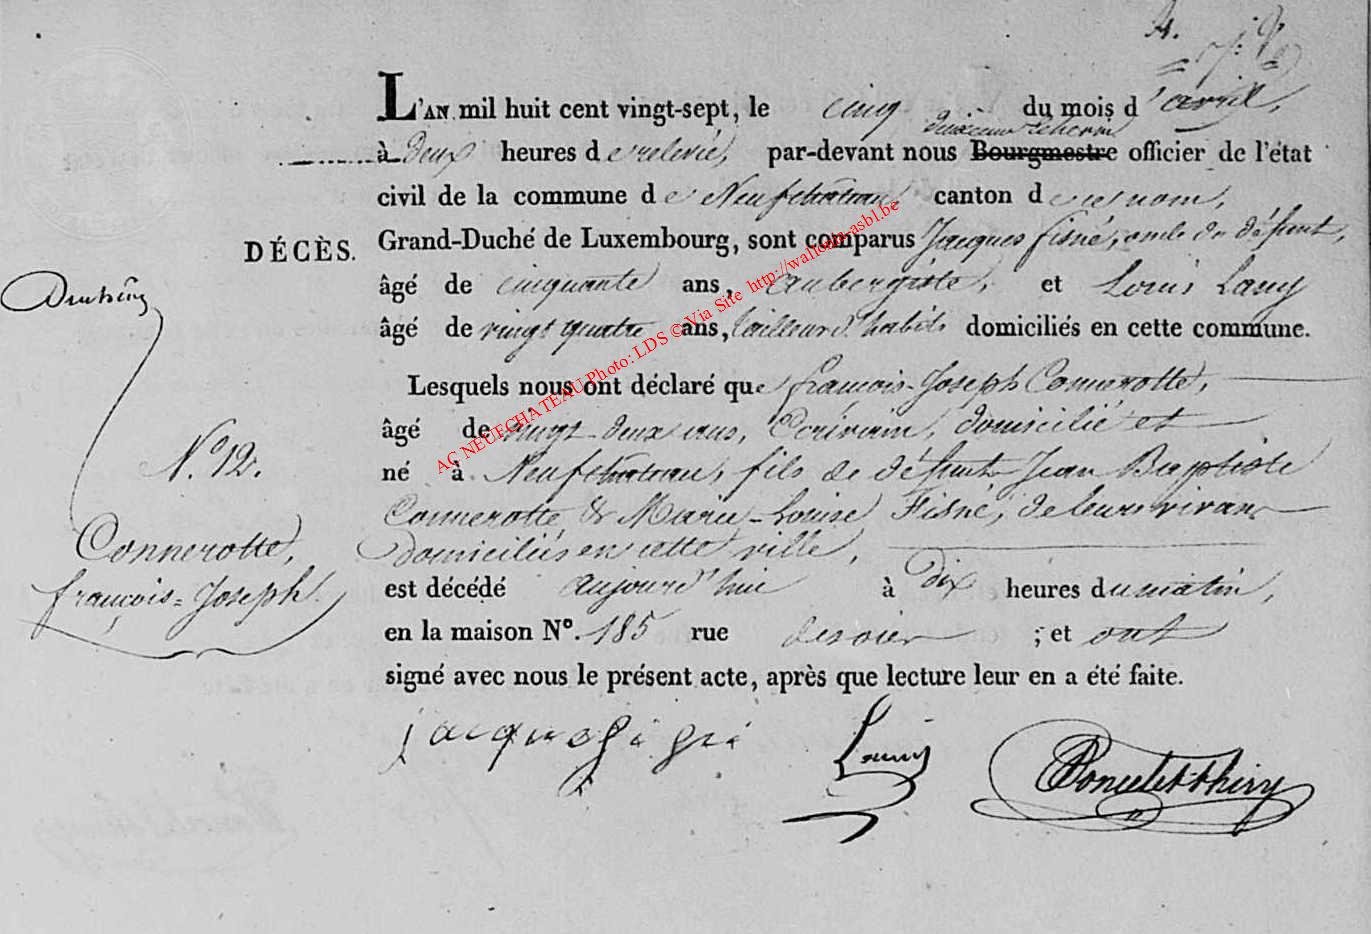 L'AN mil huit cent vingt-sept, le cinq du mois d'avril,
deuxieme echevin
à deux heures de relevée, par-devant nous Bourgmestre officier de l'état
civil de la commune de Neufchateau, canton de ce nom,
DÉCÈS. Grand-Duché de Luxembourg, sont comparus Jacques fisné, oncle du défunt,
âgé de cinquante ans, aubergiste, et Louis Lamy
âgé de vingt quatre ans, tailleur d'habits domiciliés en cette commune.
Lesquels nous ont déclaré que françois-Joseph Connerotte,
âgé de vingt-deux ans, Ecrivain, domicilié et
N.º 12. né à Neufchateau, fils de défunts Jean Baptiste
Connerotte & Marie-Louise Fisné, de leurs vivans
Connerotte, domiciliés en cette ville,
françois-Joseph. est décédé aujourd'hui à dix heures du matin,
en la maison Nº. 185 rue ; et ont
signé avec nous le présent acte, après que lecture leur en a été faite.
jacque fisné Lamy Poncelet-thiry
AC NEUFCHATEAU Photo: LDS © Via Site http://wallonia-asbl.be